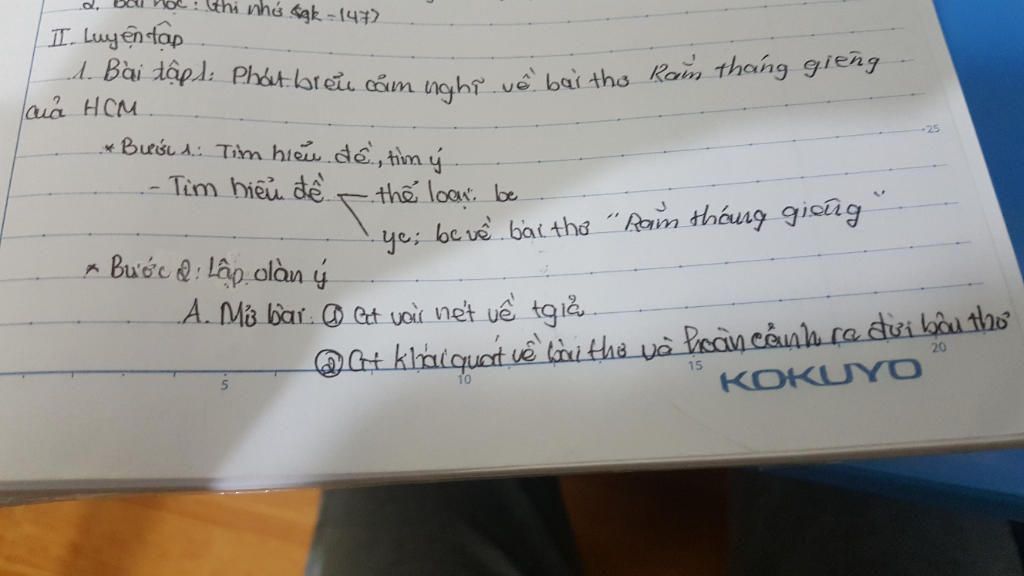 2. Bài học: Ghi nhớ sgk-147
II. Luyện tập
1. Bài tập 1: Phát biểu cảm nghĩ về bài thơ Rằm tháng giêng
của HCM
* Bước 1: Tìm hiểu đề, tìm ý
- Tìm hiểu đề thể loại: bc
yc: bc về bài thơ "Rằm tháng giêng"
* Bước 2: Lập dàn ý
A. Mở bài: ① Gt vài nét về tgiả
② Gt khái quát về bài thơ và hoàn cảnh ra đời bài thơ
25
5
10
15
20
KOKUYO